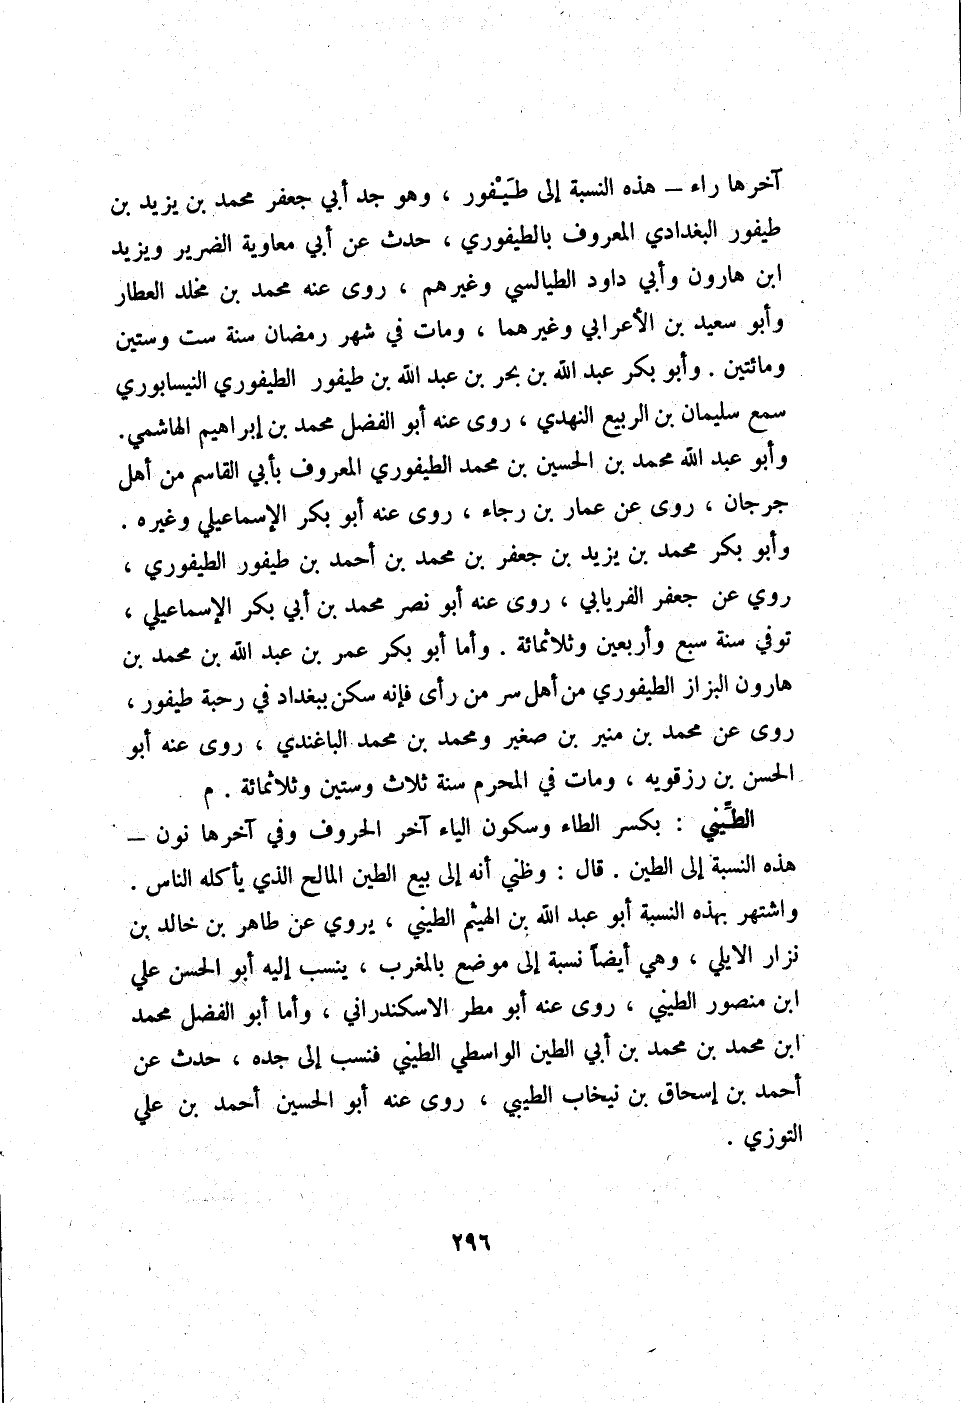 آخرها راء – هذه النسبة إلى طَيْفور ، وهو جد أبي جعفر محمد بن يزيد بن
طيفور البغدادي المعروف بالطيفوري ، حدث عن أبي معاوية الضرير ويزيد
ابن هارون وأبي داود الطيالسي وغيرهم ، روى عنه محمد بن مخلد العطار
وأبو سعيد بن الأعرابي وغيرهما ، ومات في شهر رمضان سنة ست وستين
ومائتين . وأبو بكر عبد الله بن بحر بن عبد الله بن طيفور الطيفوري النيسابوري
سمع سليمان بن الربيع النهدي ، روى عنه أبو الفضل محمد بن إبراهيم الهاشمي.
وأبو عبد الله محمد بن الحسين بن محمد الطيفوري المعروف بأبي القاسم من أهل
جرجان ، روى عن عمار بن رجاء ، روى عنه أبو بكر الإسماعيلي وغيره .
وأبو بكر محمد بن يزيد بن جعفر بن محمد بن أحمد بن طيفور الطيفوري ،
روي عن جعفر الفريابي ، روى عنه أبو نصر محمد بن أبي بكر الإسماعيلي ،
توفي سنة سبع وأربعين وثلاثمائة . وأما أبو بكر عمر بن عبد الله بن محمد بن
هارون البزاز الطيفوري من أهل سر من رأى فإنه سكن ببغداد في رحبة طيفور ،
روى عن محمد بن منير بن صغير ومحمد بن محمد الباغندي ، روى عنه أبو
الحسن بن رزقويه ، ومات في المحرم سنة ثلاث وستين وثلاثمائة . م
الطِّيني : بكسر الطاء وسكون الياء آخر الحروف وفي آخرها نون –
هذه النسبة إلى الطين . قال : وظني أنه إلى بيع الطين المالح الذي يأكله الناس .
واشتهر بهذه النسبة أبو عبد الله بن الهيثم الطيني ، يروي عن طاهر بن خالد بن
نزار الايلي ، وهي أيضاً نسبة إلى موضع بالمغرب ، ينسب إليه أبو الحسن علي
ابن منصور الطيني ، روى عنه أبو مطر الاسكندراني ، وأما أبو الفضل محمد
ابن محمد بن محمد بن أبي الطين الواسطي الطيني فنسب إلى جده ، حدث عن
أحمد بن إسحاق بن نيخاب الطيبي ، روى عنه أبو الحسين أحمد بن علي
التوزي .
٢٩٦